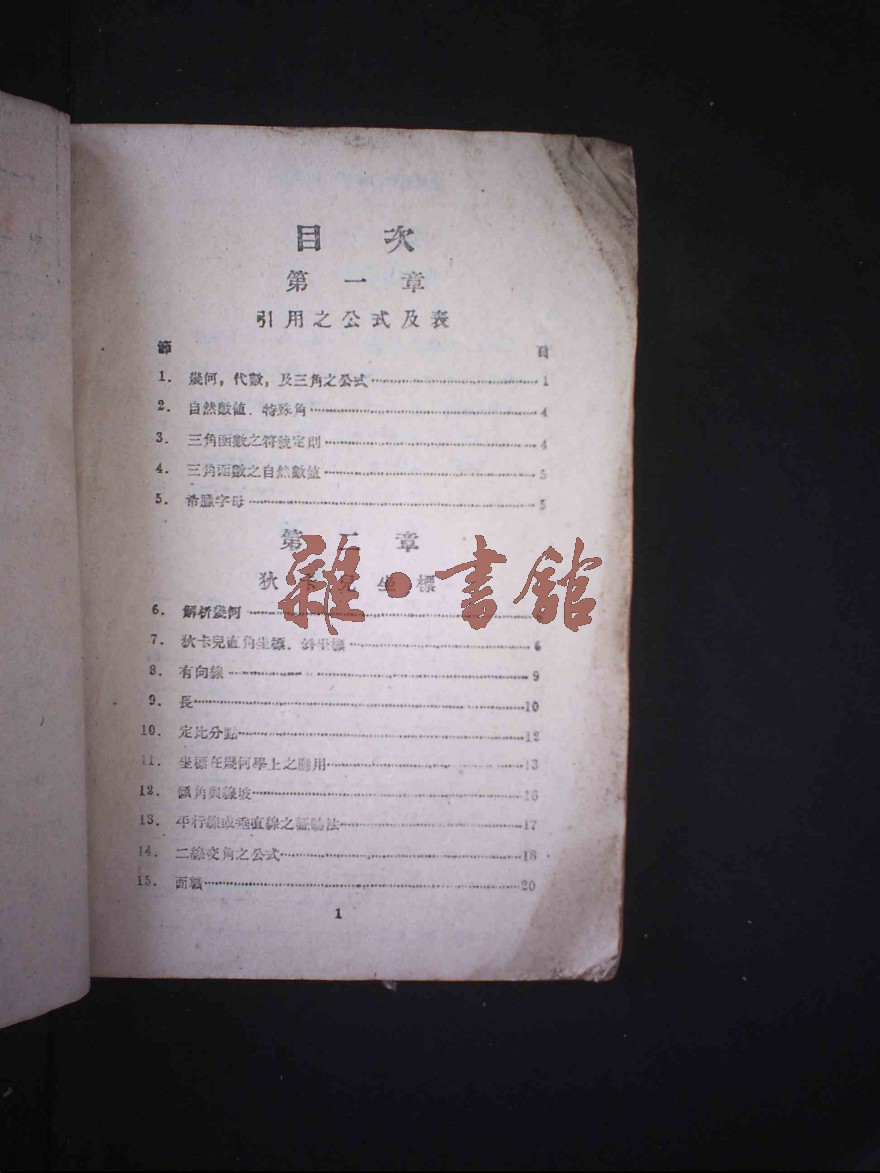 目次
第一章
引用之公式及表
節 頁
1. 幾何，代數，及三角之公式 1
2. 自然數值．特殊角 4
3. 三角函數之符號定則 4
4. 三角函數之自然數值 5
5. 希臘字母 5
第二章
狄卡兒坐標
雜·書館
6. 解析幾何
7. 狄卡兒直角坐標．斜坐標 6
8. 有向線 9
9. 長 10
10. 定比分點 12
11. 坐標在幾何學上之應用 13
12. 傾角與線坡 16
13. 平行線或垂直線之証驗法 17
14. 二線交角之公式 18
15. 面積 20
1